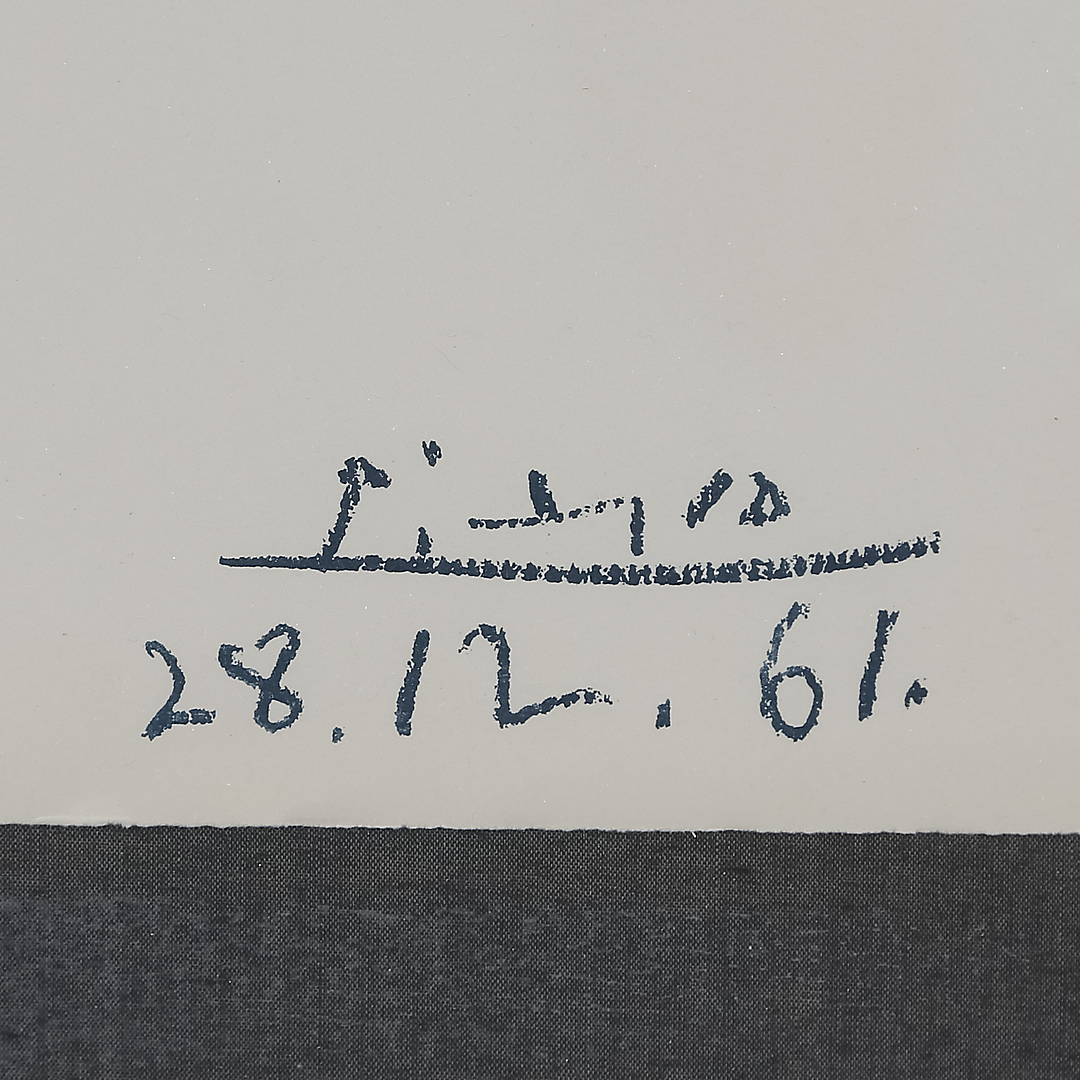 Picasso
28.12.61.